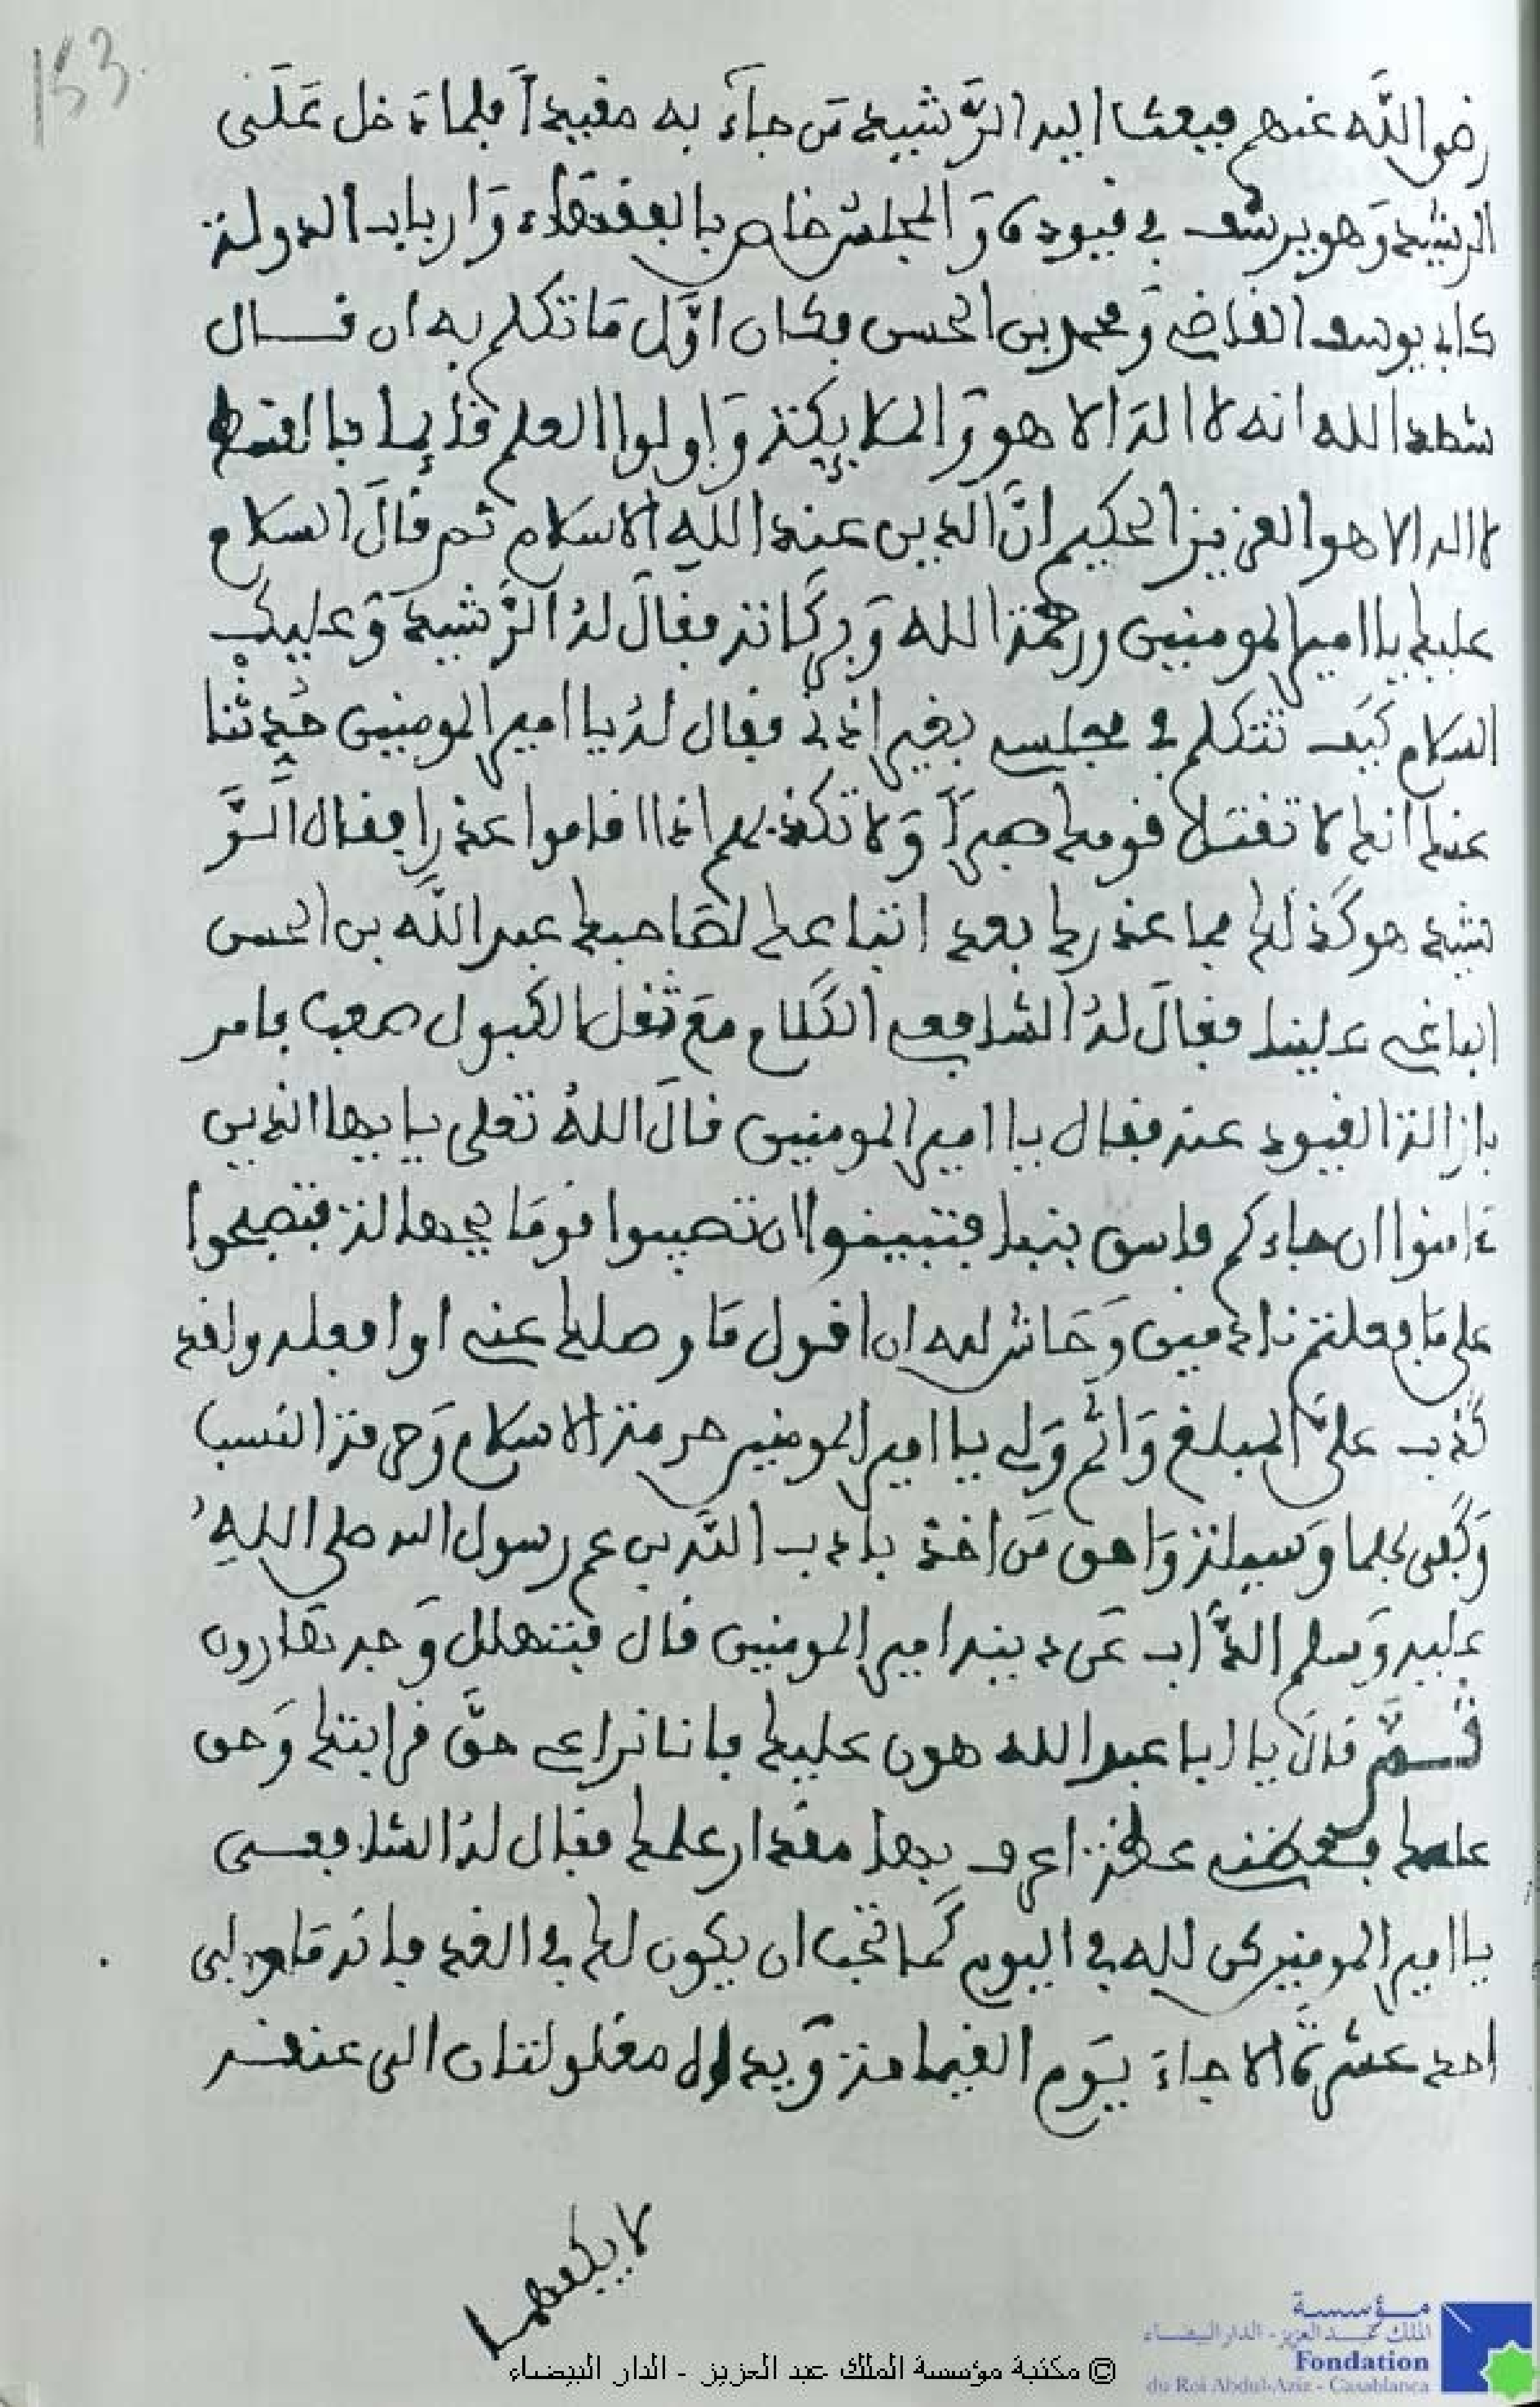 153
رضي الله عنهم فبعث اليه الرَّشيد مَن جاءَ به مقيدًا فلما دَخل عَلَى
الرشيد وَهو يرسُف في قيوده وَالمجلسُ خاص بالفقهاء وَارباب الدولة
كابي يوسف القاضي وَمحمد بن الحسن فكان اوَّل مَا تكلم به ان قال
شهد الله انه لا اله الا هو وَالملايكة وَاولوا العلم قايما بالقسط
لا اله الا هو العزيز الحكيم انَّ الدين عند اللهِ الاسلام ثم قالَ السلام
عليك يا امير المومنين ورحمة الله وَبركاته فقالَ لهُ الرَّشيد وَعليك
السلام كيَف تتكلم في مجلسي بغير اذني فقال لهُ يا امير المومنين حُدِثنا
عنك انك لا تقتل قومك صبراً وَلا تكذبهم اذا اقاموا عذرا فقال الرَّ
شيد هو كَذَلك فما عذرك بعد اتباعك لصَاحبك عبد الله بن الحسن
الباغي علينا فقالَ لهُ الشافعي الكلام مَع ثقل الكبول صعب فامر
بازالة القيود عنه فقال يا امير المومنين قالَ اللهُ تعلى يايها الذين
ءامنوا ان جاءكم فاسق بنبإ فتبينوا ان تصيبوا قومَا بجهالة فتصبحوا
على مَا فعلتم نادمين وَحَاش لله ان اقول مَا وصلك عني او افعله ولقد
كَذب عليَّ المبلغ وَاثم وَلي يا امير المومنين حرمة الاسلام وَحرمة النسب
وَكَفى بهما وَسيلة وَاحق مَن اخذ بادب الدَّين عم رسول الله صلى اللهِ
عليه وَسلم الذَّاب عَن دينه امير المومنين قال فتهلل وَجه هَارون
ثـم قال يا ابا عبد الله هون عليك فانا نراعي حقَّ قرابتك وَحق
علمك فعظني عظة اعرف بها مقدار علمك فقال لهُ الشافعي
يا امير المومنين كن لله في اليوم كَما تحب ان يكون لك في الغد فانه مَا ولي
احد عشرة الا جاءَ يَوم القيامة وَيداه مغلولتان الى عنقه
لا يفكهما
© مكتبة مؤسسة الملك عبد العزيز - الدار البيضاء
مؤسسة
الملك عبد العزيز - الدار البيضاء
Fondation
du Roi Abdul-Aziz - Casablanca